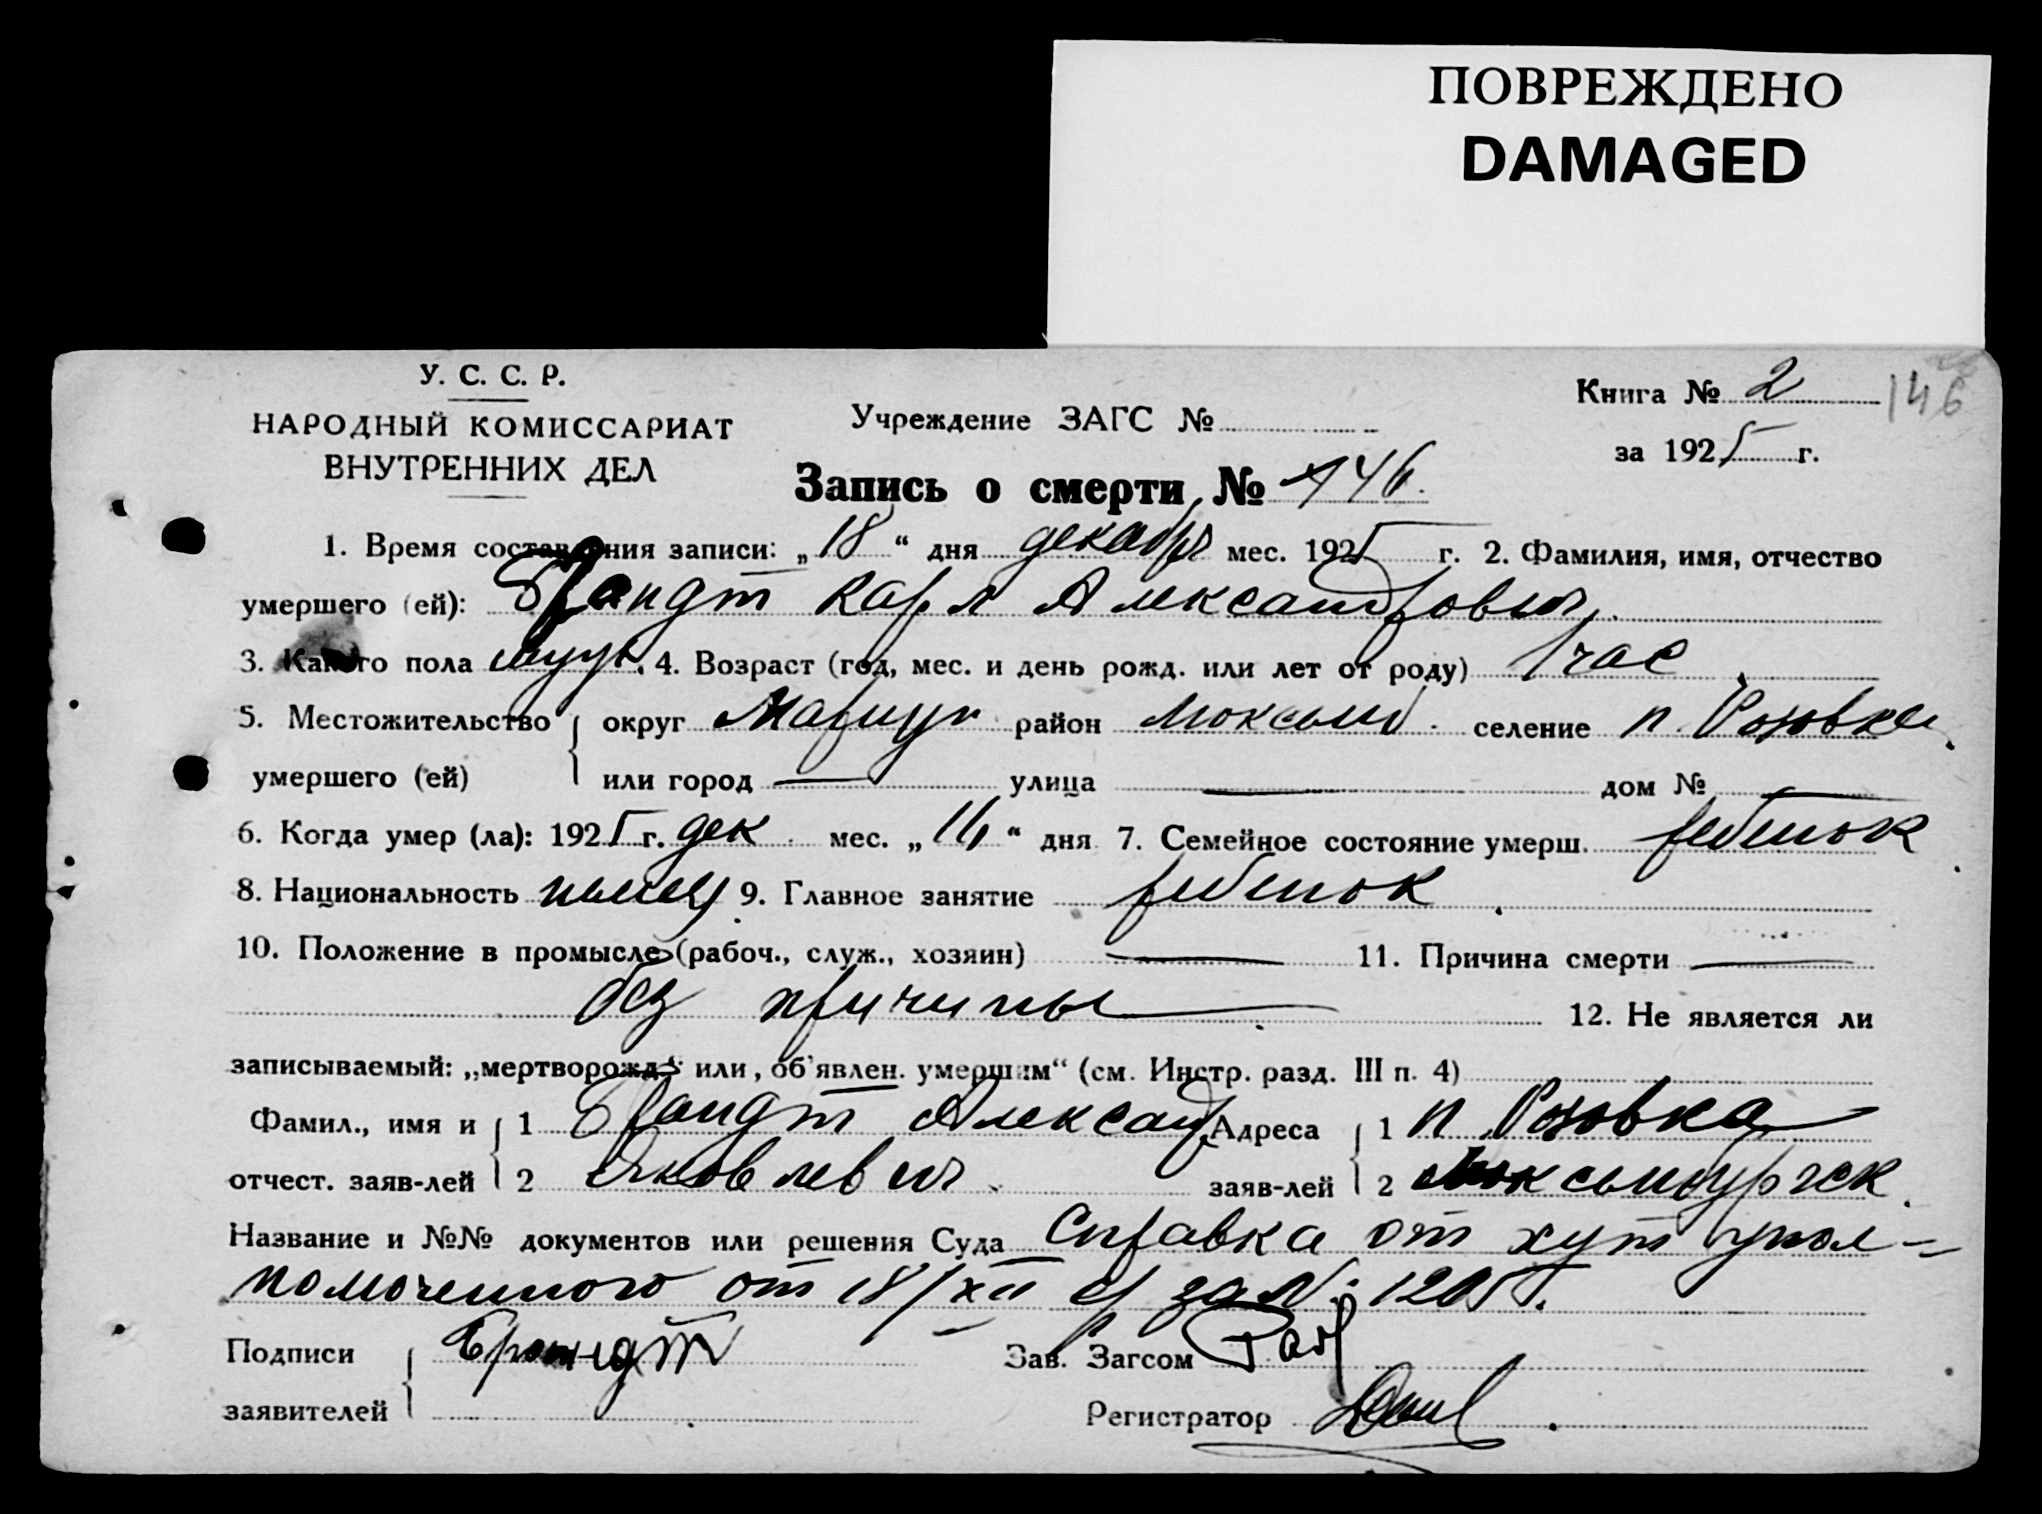 ПОВРЕЖДЕНО
DAMAGED
У. С. С. Р.
НАРОДНЫЙ КОМИССАРИАТ
ВНУТРЕННИХ ДЕЛ
Учреждение ЗАГС №
Книга № 2 146
за 1925 г.
Запись о смерти № 146.
1. Время составления записи: „18“ дня декабря мес. 1925 г. 2. Фамилия, имя, отчество
умершего (ей): Брандт Карл Александрович.
3. Какого пола муж. 4. Возраст (год, мес. и день рожд. или лет от роду) 1 час
5. Местожительство { округ Мариуп. район Люксемб. селение п. Розовка
умершего (ей) или город — улица — дом № —
6. Когда умер (ла): 1925 г. дек. мес. „16“ дня 7. Семейное состояние умерш. ребенок
8. Национальность немец 9. Главное занятие ребенок
10. Положение в промысле (рабоч., служ., хозяин) — 11. Причина смерти —
без причины — 12. Не является ли
записываемый: „мертворожд.“ или „об'явлен. умершим“ (см. Инстр. разд. III п. 4)
Фамил., имя и { 1 Брандт Александ Адреса { 1 п. Розовка
отчест. заяв-лей 2 Яковлевич. заяв-лей 2 Люксембургск.
Название и №№ документов или решения Суда Справка от хут упол-
номоченного от 18/XII с/г за №
Подписи { Брандт Зав. Загсом
заявителей Регистратор